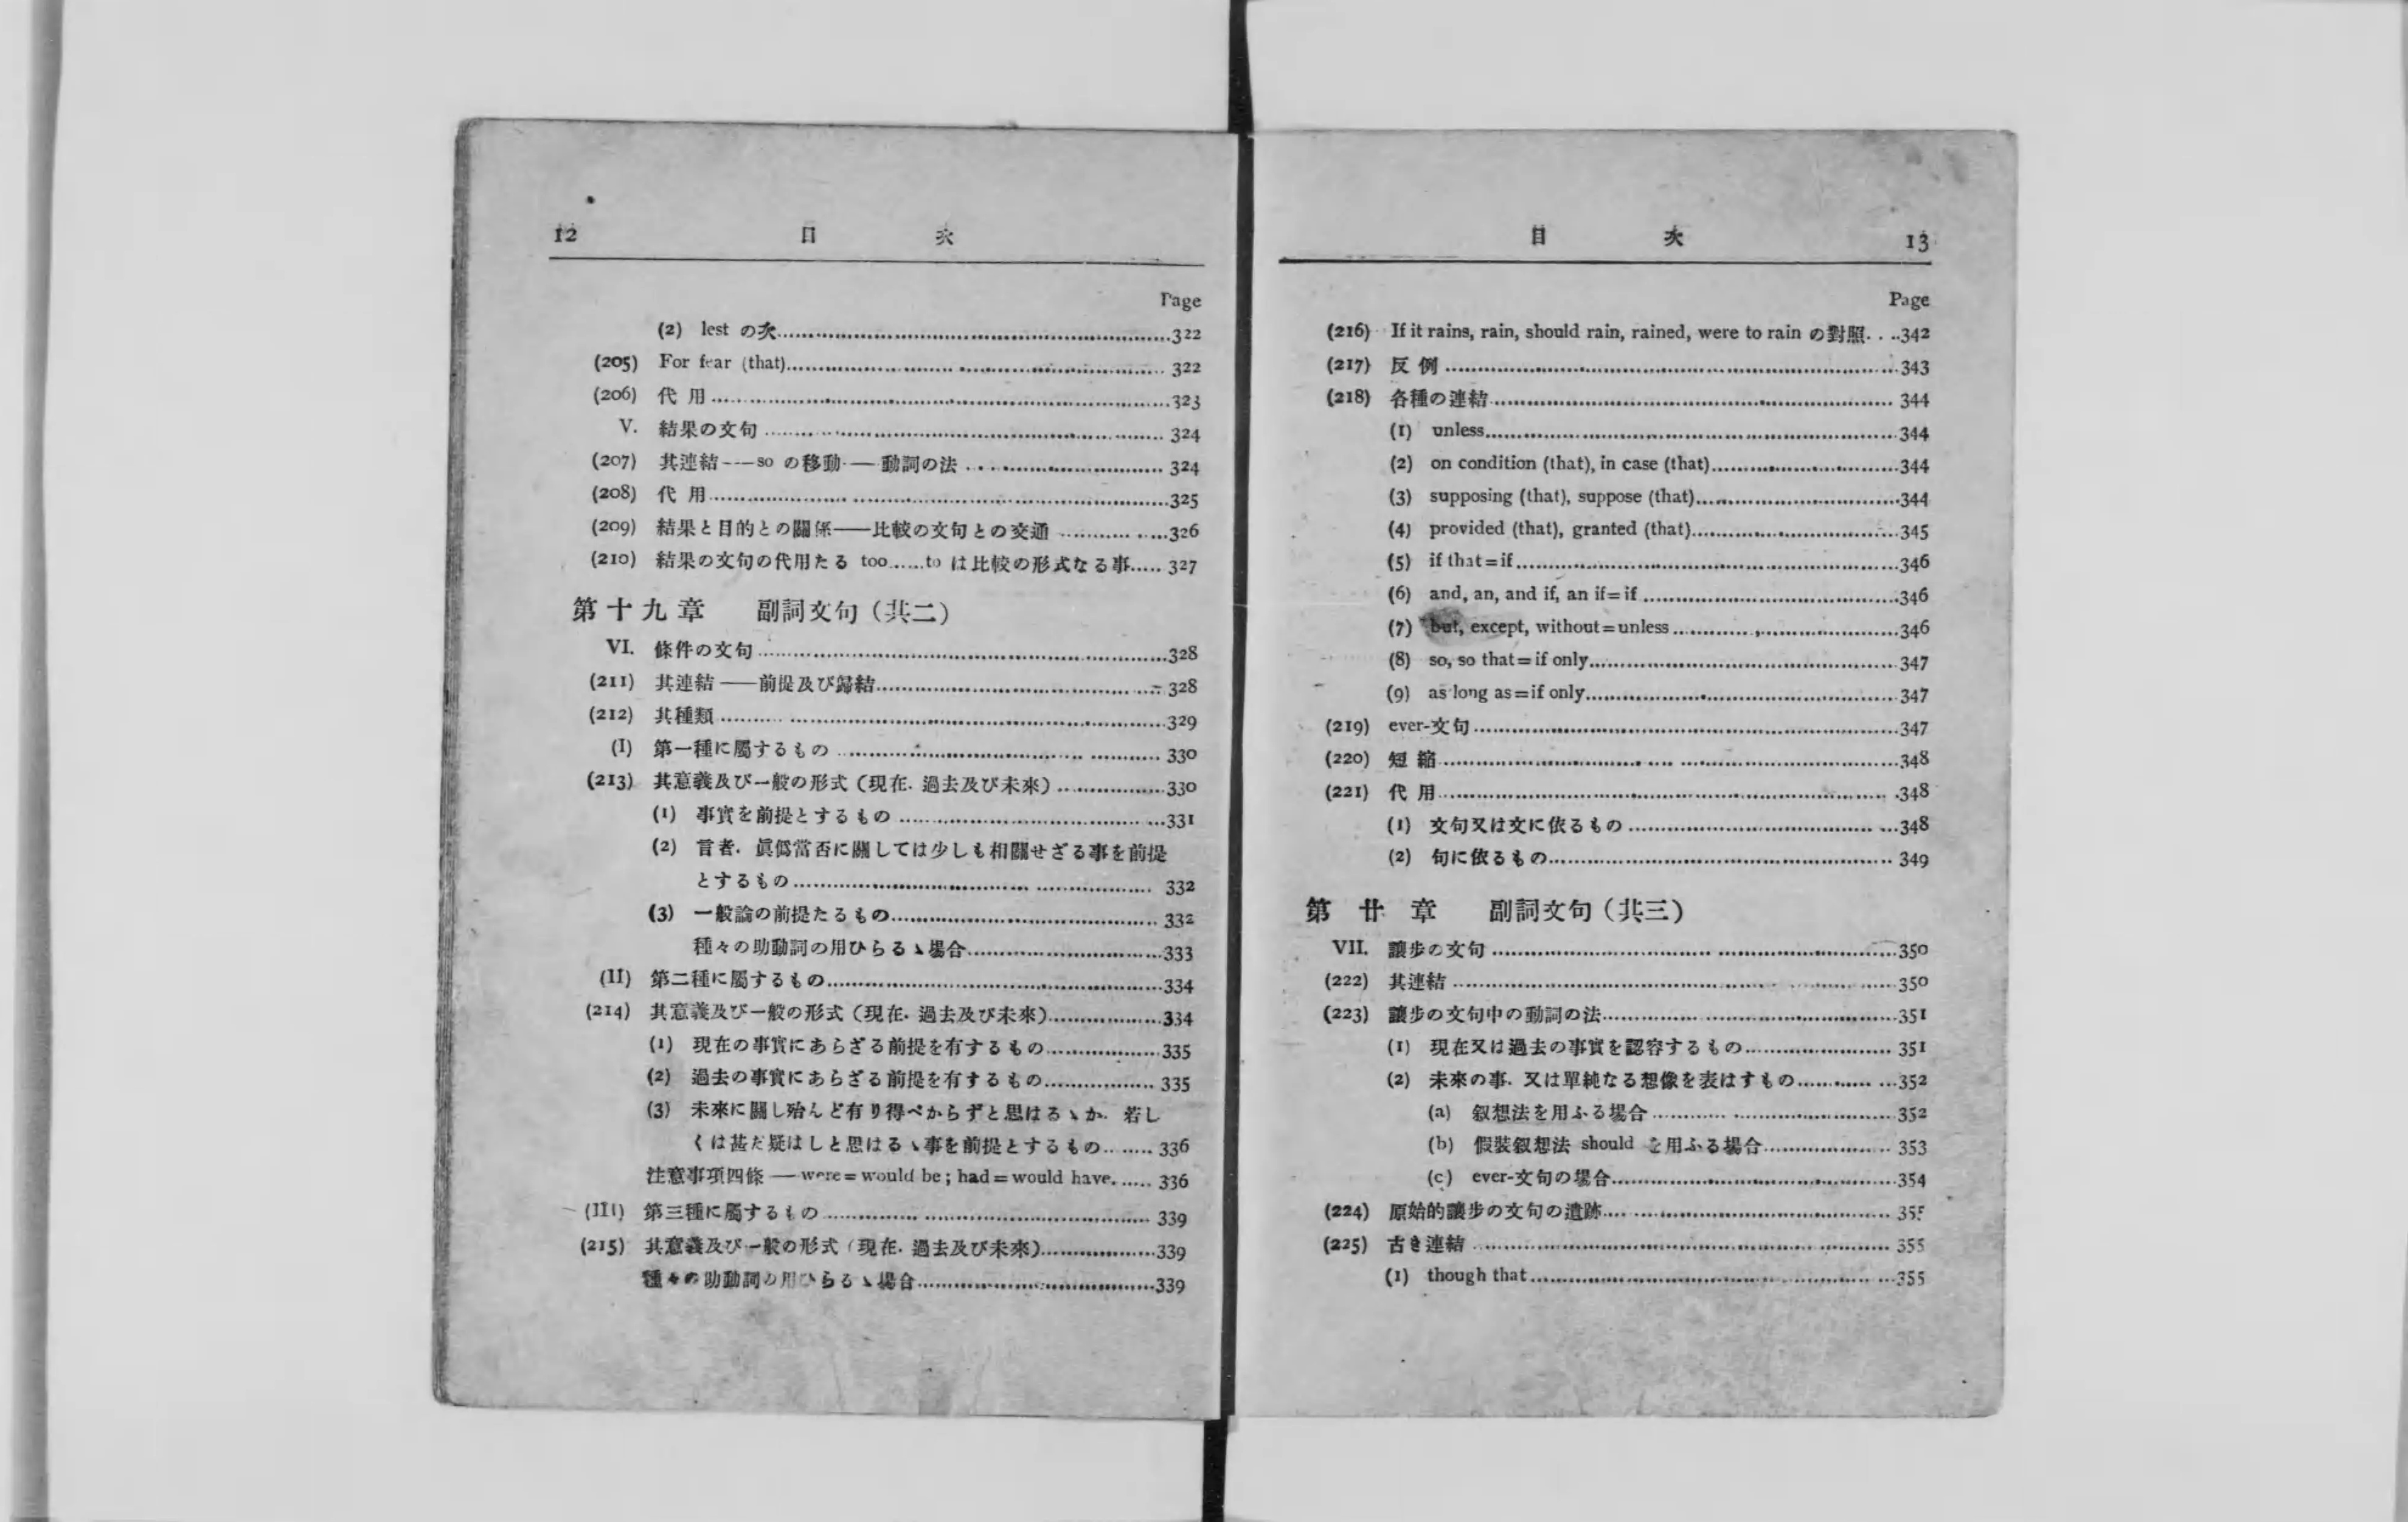 12 目 次
Page
(2) lest の次......322
(205) For fear (that)...... 322
(206) 代 用......323
V. 結果の文句...... 324
(207) 其連結——so の移動——動詞の法...... 324
(208) 代 用......325
(209) 結果と目的との關係——比較の文句との交通......326
(210) 結果の文句の代用たる too......to は比較の形式なる事..... 327
第十九章 副詞文句（共二）
VI. 條件の文句......328
(211) 其連結——前提及び歸結...... 328
(212) 其種類......329
(I) 第一種に屬するもの...... 330
(213) 其意義及び一般の形式（現在. 過去及び未來）......330
(1) 事實を前提とするもの......331
(2) 言者. 眞僞當否に關しては少しも相關せざる事を前提
とするもの...... 332
(3) 一般論の前提たるもの...... 332
種々の助動詞の用ひらるゝ場合......333
(II) 第二種に屬するもの......334
(214) 其意義及び一般の形式（現在. 過去及び未來）......334
(1) 現在の事實にあらざる前提を有するもの......335
(2) 過去の事實にあらざる前提を有するもの...... 335
(3) 未來に關し殆んど有り得べからずと思はるゝか. 若し
くは甚だ疑はしと思はるゝ事を前提とするもの...... 336
注意事項四條——were=would be; had=would have...... 336
(III) 第三種に屬するもの...... 339
(215) 其意義及び一般の形式（現在. 過去及び未來）......339
種々の助動詞の用ひらるゝ場合......339
目 次 13
Page
(216) If it rains, rain, should rain, rained, were to rain の對照....342
(217) 反 例......343
(218) 各種の連結...... 344
(1) unless......344
(2) on condition (that), in case (that)......344
(3) supposing (that), suppose (that)......344
(4) provided (that), granted (that)......345
(5) if that=if......346
(6) and, an, and if, an if=if......346
(7) but, except, without=unless......346
(8) so, so that=if only......347
(9) as long as=if only......347
(219) ever-文句......347
(220) 短 縮......348
(221) 代 用......348
(1) 文句又は文に依るもの......348
(2) 句に依るもの...... 349
第廿章 副詞文句（共三）
VII. 讓步の文句......350
(222) 其連結......350
(223) 讓步の文句中の動詞の法......351
(1) 現在又は過去の事實を認容するもの...... 351
(2) 未來の事. 又は單純なる想像を表はすもの......352
(a) 叙想法を用ふる場合......352
(b) 假裝叙想法 should を用ふる場合...... 353
(c) ever-文句の場合......354
(224) 原始的讓步の文句の遺跡...... 355
(225) 古き連結...... 355
(1) though that......355